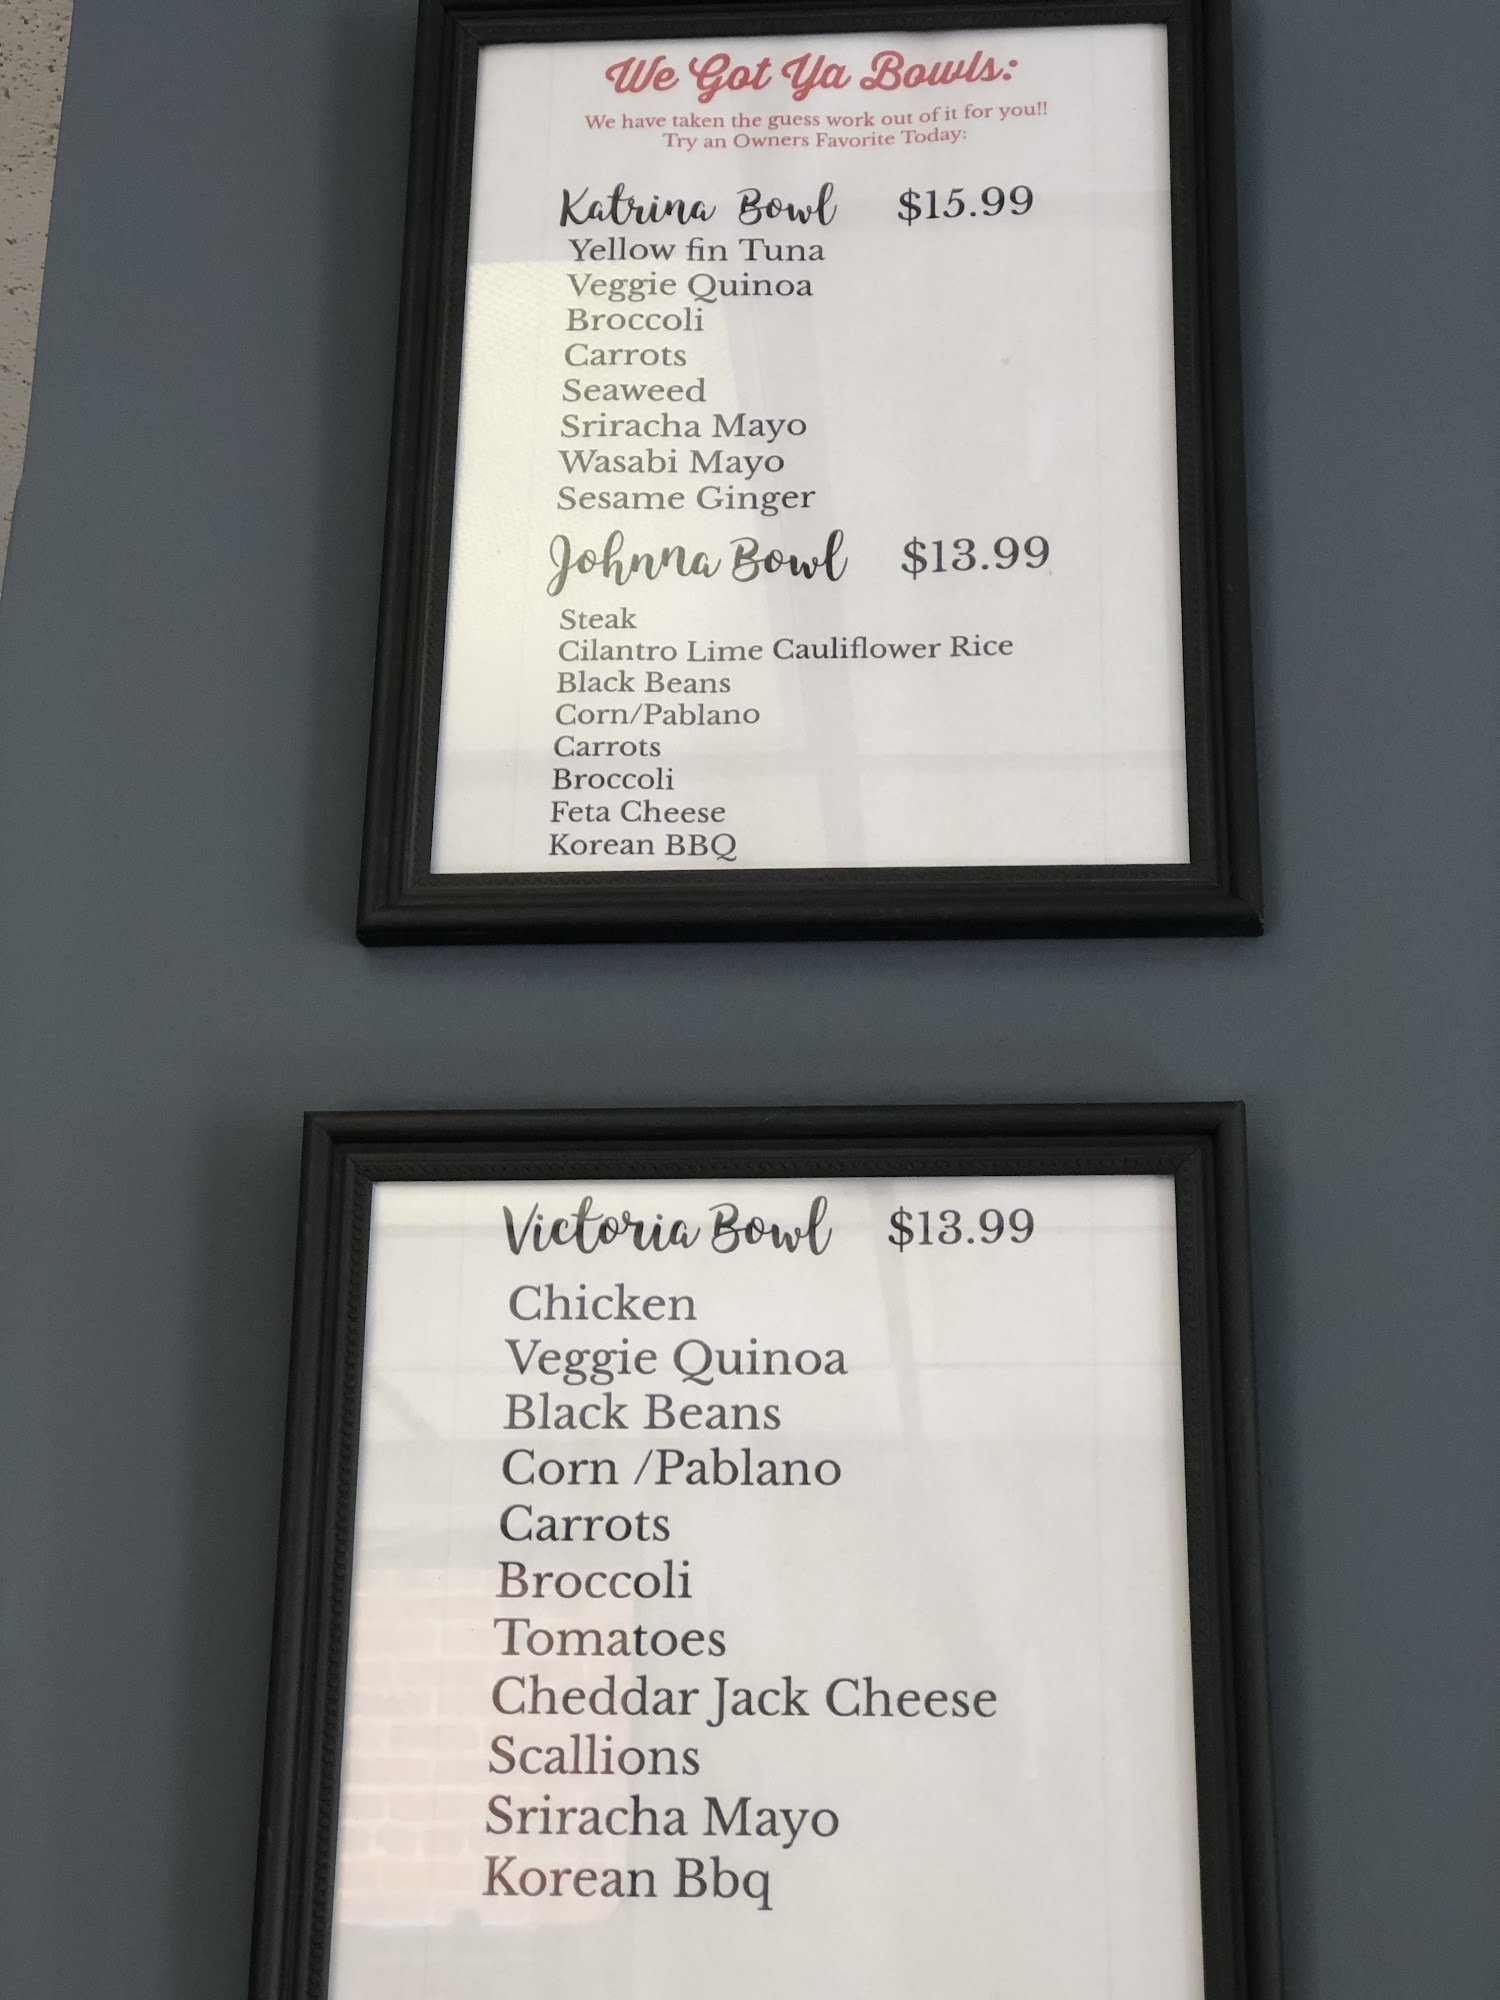 We Got Ya Bowls:
We have taken the guess work out of it for you!!
Try an Owners Favorite Today:
Katrina Bowl $15.99
Yellow fin Tuna
Veggie Quinoa
Broccoli
Carrots
Seaweed
Sriracha Mayo
Wasabi Mayo
Sesame Ginger
Johnna Bowl $13.99
Steak
Cilantro Lime Cauliflower Rice
Black Beans
Corn/Pablano
Carrots
Broccoli
Feta Cheese
Korean BBQ
Victoria Bowl $13.99
Chicken
Veggie Quinoa
Black Beans
Corn /Pablano
Carrots
Broccoli
Tomatoes
Cheddar Jack Cheese
Scallions
Sriracha Mayo
Korean Bbq